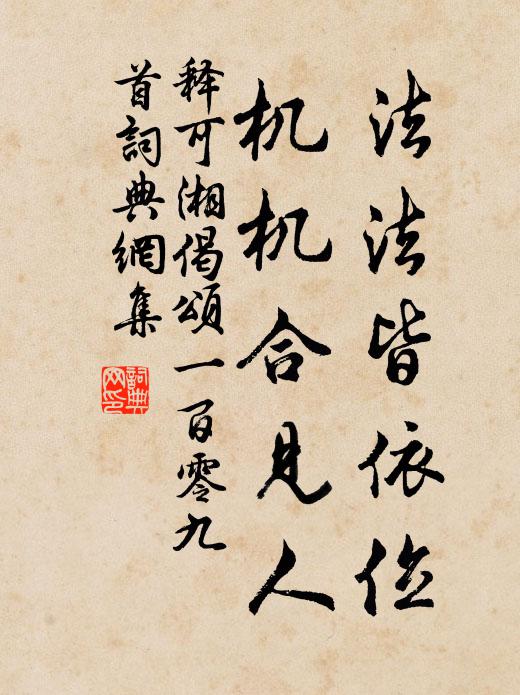 法法皆依位
机机合见人
释可湘偈頌一百零九
首詞典網集
詞典
网印